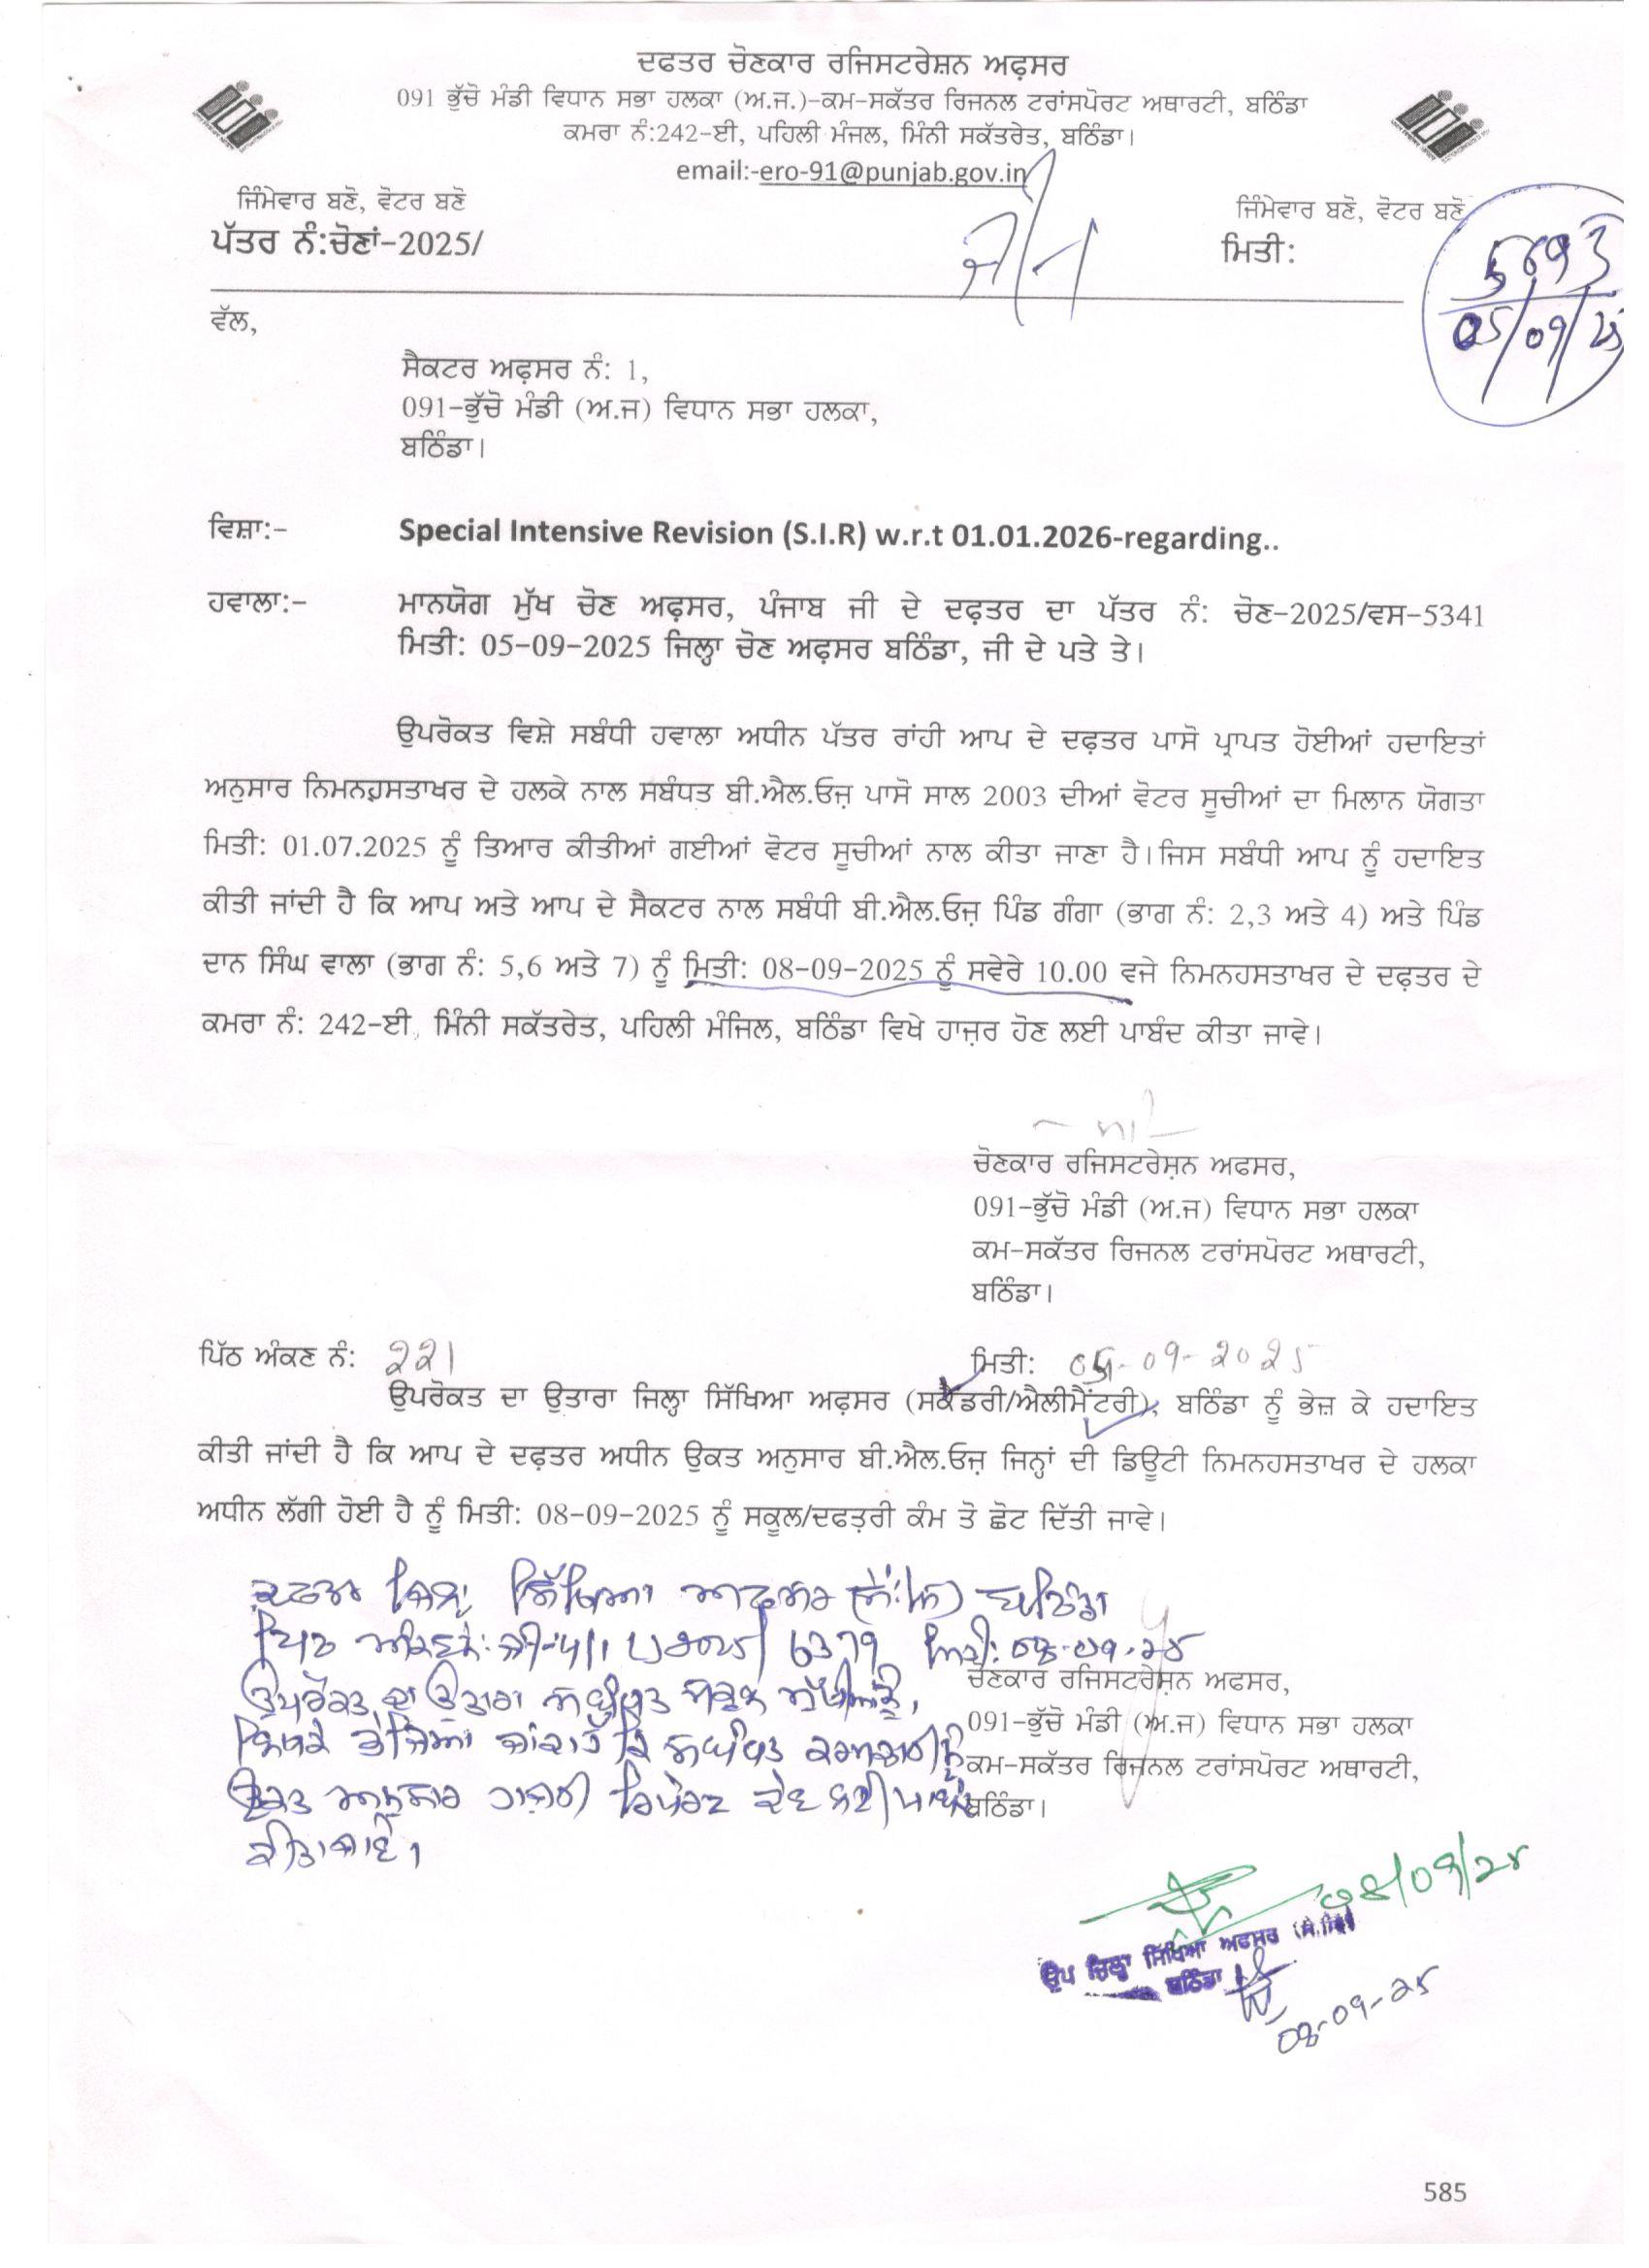 ਦਫਤਰ ਚੋਣਕਾਰ ਰਜਿਸਟਰੇਸ਼ਨ ਅਫ਼ਸਰ
091 ਭੁੱਚੋ ਮੰਡੀ ਵਿਧਾਨ ਸਭਾ ਹਲਕਾ (ਅ.ਜ.)-ਕਮ-ਸਕੱਤਰ ਰਿਜਨਲ ਟਰਾਂਸਪੋਰਟ ਅਥਾਰਟੀ, ਬਠਿੰਡਾ
ਕਮਰਾ ਨੰ:242-ਈ, ਪਹਿਲੀ ਮੰਜਲ, ਮਿੰਨੀ ਸਕੱਤਰੇਤ, ਬਠਿੰਡਾ।
email:-ero-91@punjab.gov.in
ਜਿੰਮੇਵਾਰ ਬਣੋ, ਵੋਟਰ ਬਣੋ
ਜਿੰਮੇਵਾਰ ਬਣੋ, ਵੋਟਰ ਬਣੋ
ਪੱਤਰ ਨੰ:ਚੋਣਾਂ-2025/
ਮਿਤੀ:
5693
05/09/25
ਵੱਲ,
ਸੈਕਟਰ ਅਫ਼ਸਰ ਨੰ: 1,
091-ਭੁੱਚੋ ਮੰਡੀ (ਅ.ਜ) ਵਿਧਾਨ ਸਭਾ ਹਲਕਾ,
ਬਠਿੰਡਾ।
ਵਿਸ਼ਾ:- Special Intensive Revision (S.I.R) w.r.t 01.01.2026-regarding..
ਹਵਾਲਾ:- ਮਾਨਯੋਗ ਮੁੱਖ ਚੋਣ ਅਫ਼ਸਰ, ਪੰਜਾਬ ਜੀ ਦੇ ਦਫ਼ਤਰ ਦਾ ਪੱਤਰ ਨੰ: ਚੋਣ-2025/ਵਸ-5341
ਮਿਤੀ: 05-09-2025 ਜਿਲ੍ਹਾ ਚੋਣ ਅਫ਼ਸਰ ਬਠਿੰਡਾ, ਜੀ ਦੇ ਪਤੇ ਤੇ।
ਉਪਰੋਕਤ ਵਿਸ਼ੇ ਸਬੰਧੀ ਹਵਾਲਾ ਅਧੀਨ ਪੱਤਰ ਰਾਂਹੀ ਆਪ ਦੇ ਦਫ਼ਤਰ ਪਾਸੋ ਪ੍ਰਾਪਤ ਹੋਈਆਂ ਹਦਾਇਤਾਂ
ਅਨੁਸਾਰ ਨਿਮਨਹਸਤਾਖਰ ਦੇ ਹਲਕੇ ਨਾਲ ਸਬੰਧਤ ਬੀ.ਐਲ.ਓਜ਼ ਪਾਸੋ ਸਾਲ 2003 ਦੀਆਂ ਵੋਟਰ ਸੂਚੀਆਂ ਦਾ ਮਿਲਾਨ ਯੋਗਤਾ
ਮਿਤੀ: 01.07.2025 ਨੂੰ ਤਿਆਰ ਕੀਤੀਆਂ ਗਈਆਂ ਵੋਟਰ ਸੂਚੀਆਂ ਨਾਲ ਕੀਤਾ ਜਾਣਾ ਹੈ।ਜਿਸ ਸਬੰਧੀ ਆਪ ਨੂੰ ਹਦਾਇਤ
ਕੀਤੀ ਜਾਂਦੀ ਹੈ ਕਿ ਆਪ ਅਤੇ ਆਪ ਦੇ ਸੈਕਟਰ ਨਾਲ ਸਬੰਧੀ ਬੀ.ਐਲ.ਓਜ਼ ਪਿੰਡ ਗੰਗਾ (ਭਾਗ ਨੰ: 2,3 ਅਤੇ 4) ਅਤੇ ਪਿੰਡ
ਦਾਨ ਸਿੰਘ ਵਾਲਾ (ਭਾਗ ਨੰ: 5,6 ਅਤੇ 7) ਨੂੰ ਮਿਤੀ: 08-09-2025 ਨੂੰ ਸਵੇਰੇ 10.00 ਵਜੇ ਨਿਮਨਹਸਤਾਖਰ ਦੇ ਦਫ਼ਤਰ ਦੇ
ਕਮਰਾ ਨੰ: 242-ਈ, ਮਿੰਨੀ ਸਕੱਤਰੇਤ, ਪਹਿਲੀ ਮੰਜਿਲ, ਬਠਿੰਡਾ ਵਿਖੇ ਹਾਜ਼ਰ ਹੋਣ ਲਈ ਪਾਬੰਦ ਕੀਤਾ ਜਾਵੇ।
ਚੋਣਕਾਰ ਰਜਿਸਟਰੇਸ਼ਨ ਅਫਸਰ,
091-ਭੁੱਚੋ ਮੰਡੀ (ਅ.ਜ) ਵਿਧਾਨ ਸਭਾ ਹਲਕਾ
ਕਮ-ਸਕੱਤਰ ਰਿਜਨਲ ਟਰਾਂਸਪੋਰਟ ਅਥਾਰਟੀ,
ਬਠਿੰਡਾ।
ਪਿੱਠ ਅੰਕਣ ਨੰ: 221 ਮਿਤੀ: 05-09-2025
ਉਪਰੋਕਤ ਦਾ ਉਤਾਰਾ ਜਿਲ੍ਹਾ ਸਿੱਖਿਆ ਅਫ਼ਸਰ (ਸਕੈਂਡਰੀ/ਐਲੀਮੈਂਟਰੀ), ਬਠਿੰਡਾ ਨੂੰ ਭੇਜ਼ ਕੇ ਹਦਾਇਤ
ਕੀਤੀ ਜਾਂਦੀ ਹੈ ਕਿ ਆਪ ਦੇ ਦਫ਼ਤਰ ਅਧੀਨ ਉਕਤ ਅਨੁਸਾਰ ਬੀ.ਐਲ.ਓਜ਼ ਜਿਨ੍ਹਾਂ ਦੀ ਡਿਊਟੀ ਨਿਮਨਹਸਤਾਖਰ ਦੇ ਹਲਕਾ
ਅਧੀਨ ਲੱਗੀ ਹੋਈ ਹੈ ਨੂੰ ਮਿਤੀ: 08-09-2025 ਨੂੰ ਸਕੂਲ/ਦਫਤ਼ਰੀ ਕੰਮ ਤੋ ਛੋਟ ਦਿੱਤੀ ਜਾਵੇ।
ਦਫਤਰ ਜਿਲ੍ਹਾ ਸਿੱਖਿਆ ਅਫਸਰ (ਸੈ:ਸਿ) ਬਠਿੰਡਾ
ਪਿਠ ਅੰਕਣ ਨੰ: 2025/ 6379 ਮਿਤੀ: 08-09-25
ਚੋਣਕਾਰ ਰਜਿਸਟਰੇਸ਼ਨ ਅਫਸਰ,
ਉਪਰੋਕਤ ਦਾ ਉਤਾਰਾ ਸਬੰਧਤ ਸਕੂਲ ਮੁੱਖੀਆਂ ਨੂੰ
091-ਭੁੱਚੋ ਮੰਡੀ (ਅ.ਜ) ਵਿਧਾਨ ਸਭਾ ਹਲਕਾ
ਲਿਖਕੇ ਭੇਜਿਆ ਜਾਂਦਾ ਹੈ ਕਿ ਸਬੰਧਤ ਕਰਮਚਾਰੀ ਨੂੰ
ਕਮ-ਸਕੱਤਰ ਰਿਜਨਲ ਟਰਾਂਸਪੋਰਟ ਅਥਾਰਟੀ,
ਉਕਤ ਅਨੁਸਾਰ ਹਾਜ਼ਰੀ ਰਿਪੋਰਟ ਦੇਣ ਲਈ ਪਾਬੰਦ
ਬਠਿੰਡਾ।
ਕੀਤਾ ਜਾਵੇ।
08/09/25
ਉਪ ਜ਼ਿਲ੍ਹਾ ਸਿੱਖਿਆ ਅਫਸਰ (ਸੈ.ਸਿ)
ਬਠਿੰਡਾ
08-09-25
585